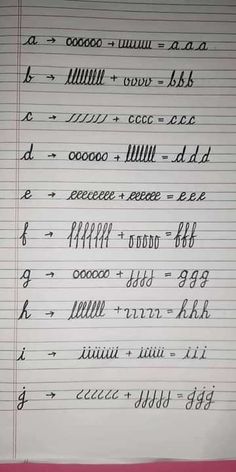 a → oooooo + ıııııııı = a a a
b → llllllll + oooo = b b b
c → ////// + cccc = c c c
d → oooooo + llllllll = d d d
e → eeeeeeee + eeeeee = e e e
f → fffffff + ooooo = f f f
g → oooooo + jjjj = g g g
h → lllllll + ııııı = h h h
i → iiiiiii + iiiiii = i i i
j → cccccc + jjjjj = j j j